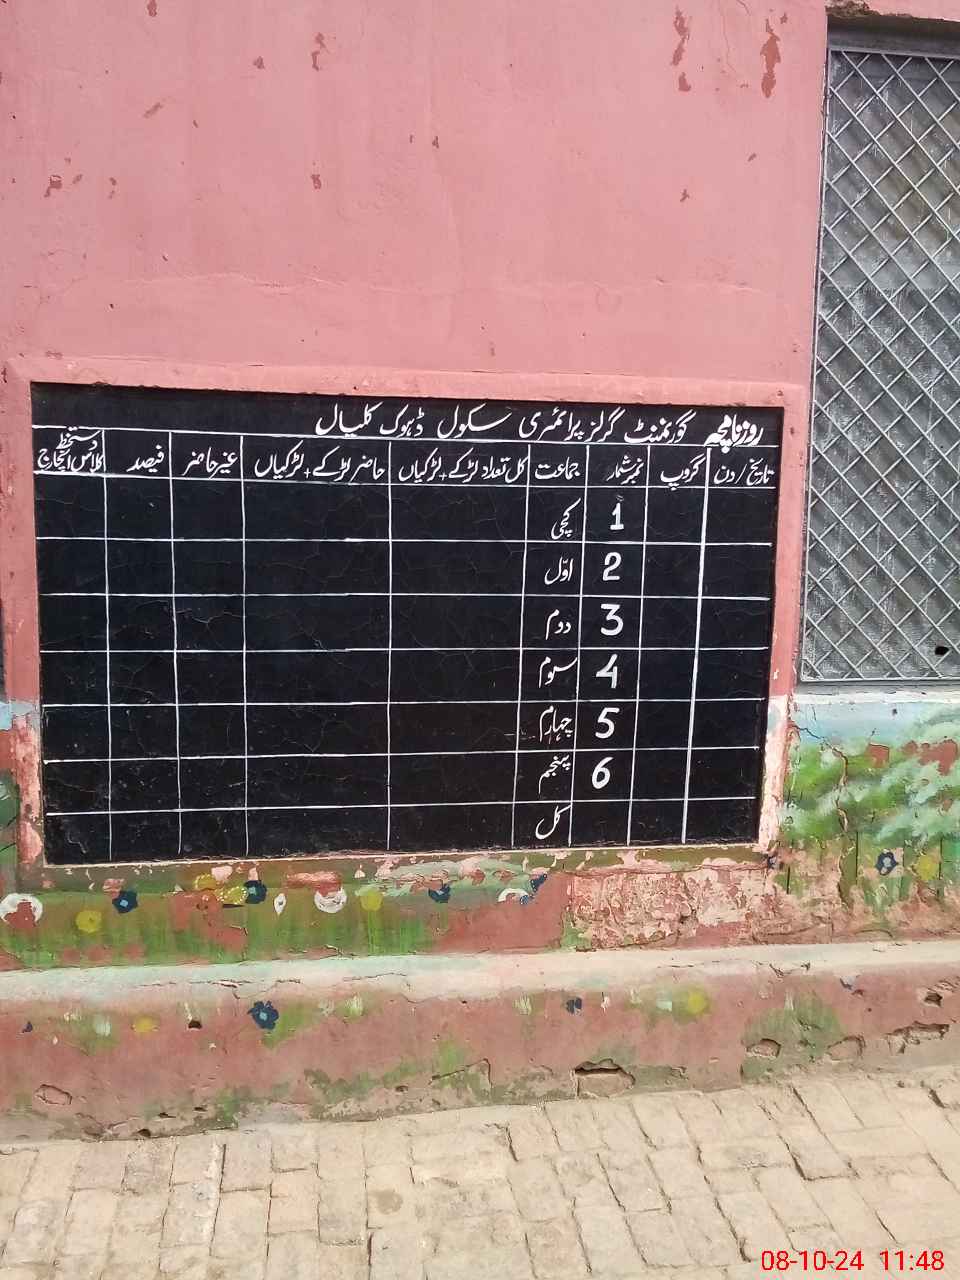 روزنامچہ گورنمنٹ گرلز پرائمری سکول ڈہوک کلیال
تاریخ / دن گروپ نمبر شمار جماعت کل تعداد لڑکے + لڑکیاں حاضر لڑکے + لڑکیاں غیر حاضر فیصد دستخط کلاس انچارج
1 کچی
2 اوّل
3 دوم
4 سوم
5 چہارم
6 پنجم
کل
08-10-24 11:48